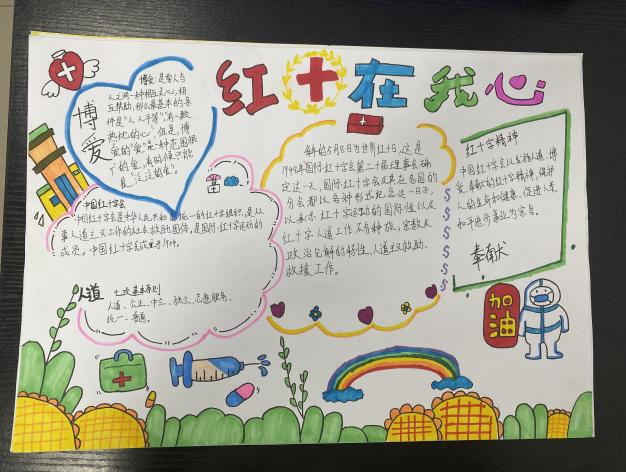 红十在我心
博爱
博爱:是要人与
人之间一种相互关心,相
互帮助,那么最基本的条
件是"人人平等",有一颗
热忱的心,但是,博
爱的"爱"是一种范围很
广的爱,有时候只能
是"泛泛的爱"。
中国红十字会
中国红十字会是中华人民共和国统一的红十字组织,是从
事人道主义工作的社会救助团体,是国际红十字运动的
成员。中国红十字会成立于1904。
人道
七次基本原则
人道、公正、中立、独立、志愿服务、
统一、普遍。
每年的5月8日为世界红十日,这是
1948年国际红十字会第二十届理事会确
定这一天,国际红十字会及其在各国的
分会都以各种形式纪念这一日子,
以表示红十字运动的国际性以及
红十字人道工作不分种族、宗教及
政治见解的特性、人道主救助、
救援工作。
红十字精神
中国红十字会以发扬人道、博
爱、奉献的红十字精神,保护
人的生命和健康,促进人类
和平进步事业为宗旨。
奉献
加油